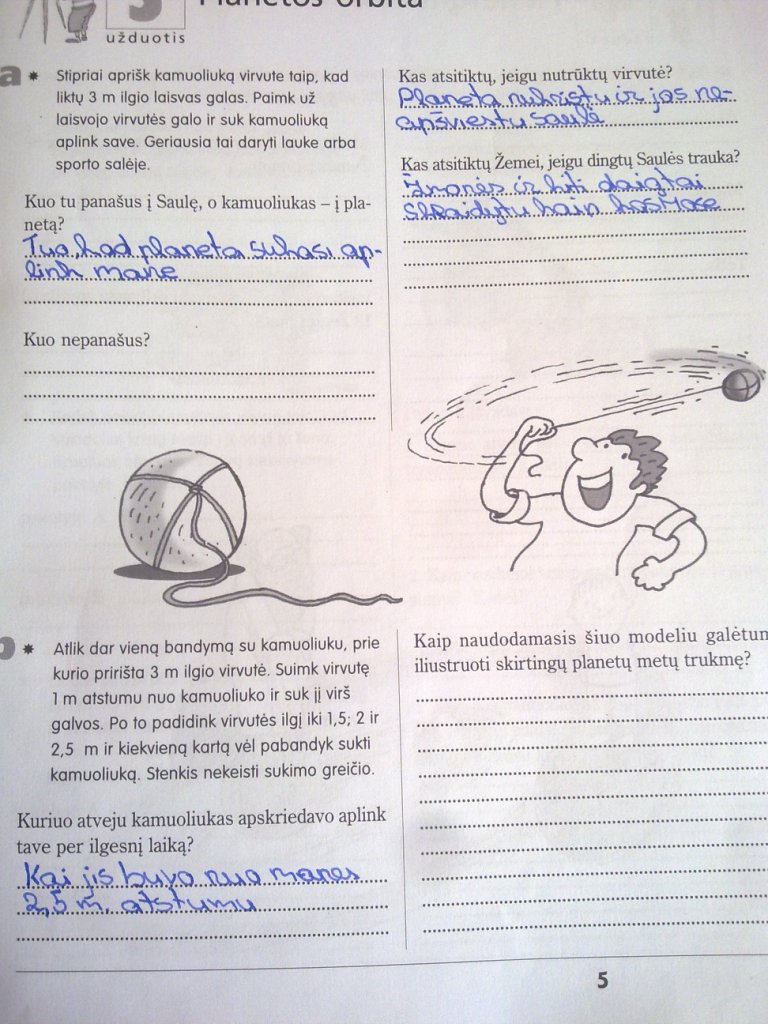 3
Planetos orbita
užduotis
a * Stipriai aprišk kamuoliuką virvute taip, kad
liktų 3 m ilgio laisvas galas. Paimk už
laisvojo virvutės galo ir suk kamuoliuką
aplink save. Geriausia tai daryti lauke arba
sporto salėje.
Kuo tu panašus į Saulę, o kamuoliukas – į pla-
netą?
Tuo, kad planeta sukasi ap-
link mane
Kuo nepanašus?
Kas atsitiktų, jeigu nutrūktų virvutė?
Planeta nukristu ir jos ne-
apšviestu saulė
Kas atsitiktų Žemei, jeigu dingtų Saulės trauka?
Žmonės ir kiti daigtai
skraidytu kaip kosmose
b * Atlik dar vieną bandymą su kamuoliuku, prie
kurio pririšta 3 m ilgio virvutė. Suimk virvutę
1 m atstumu nuo kamuoliuko ir suk jį virš
galvos. Po to padidink virvutės ilgį iki 1,5; 2 ir
2,5 m ir kiekvieną kartą vėl pabandyk sukti
kamuoliuką. Stenkis nekeisti sukimo greičio.
Kuriuo atveju kamuoliukas apskriedavo aplink
tave per ilgesnį laiką?
Kai jis buvo nuo manęs
2,5 m. atstumu
Kaip naudodamasis šiuo modeliu galėtum
iliustruoti skirtingų planetų metų trukmę?
5